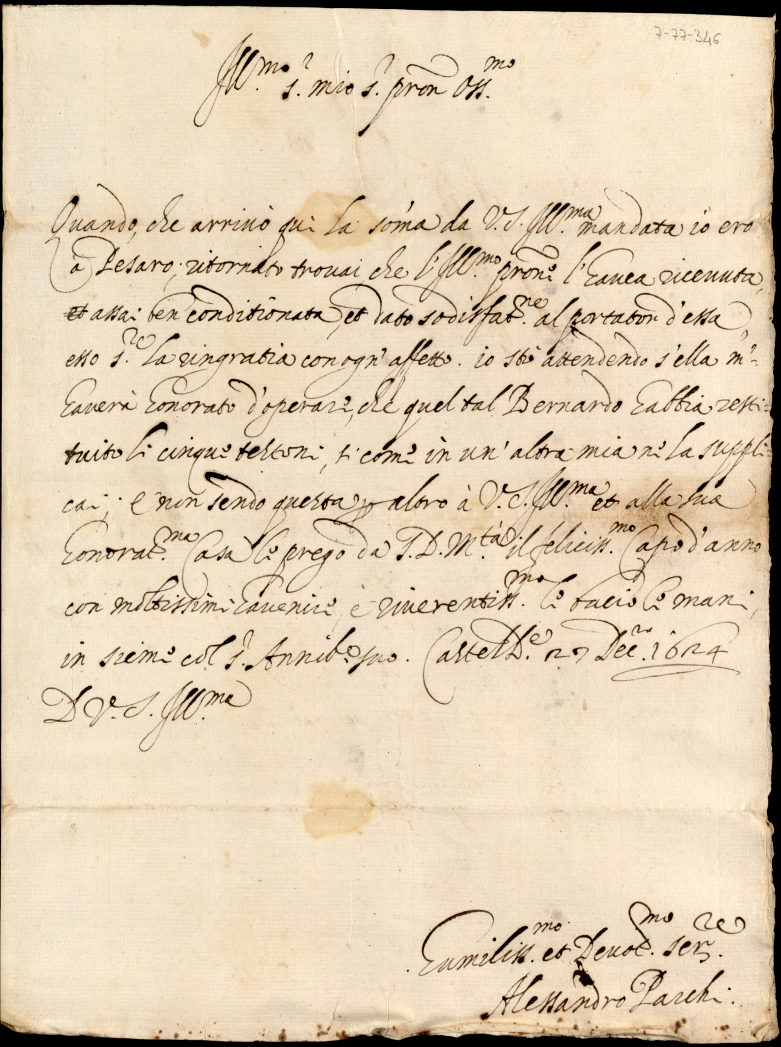 7-77-346
Ill.mo s.r mio s.r pron Oss.mo
Quando, che arrivò qui la soma da V.S. Ill.ma mandata io ero
à Pesaro; ritornato trovai che l'Ill.mo pron.e l'havea ricevuta,
et assai ben conditionata, et dato sodisfat.ne al portator d'essa,
esso s.re la ringratia con ogn'affetto. io stò attendendo s'ella m'-
haverà honorato d'operare, che quel tal Bernardo habbia resti-
tuito li cinque testoni, si come in un'altra mia ne la suppli-
cai; è non sendo questa p altro à V.S. Ill.ma et alla sua
honorat.ma Casa le prego da S.D.M.tà il feliciss.mo Capo d'anno
con moltissimi havenire, è riverentiss.mo le bacio le mani,
insieme col s.r Annib.e suo. Castel D.e 27 Dec.re 1624
D V.S. Ill.ma
Humiliss.mo et Devot.mo ser.re
Alessandro